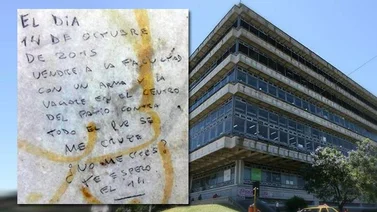 EL DIA
14 DE OCTUBRE
DE 2015
VENDRE A LA FACULTAD
CON UN ARMA Y LA
EN EL CENTRO
DEL PATIO CONTRA
TODO EL QUE SE
ME CRUCE
¿NO ME CREES?
TE ESPERO
EL 14